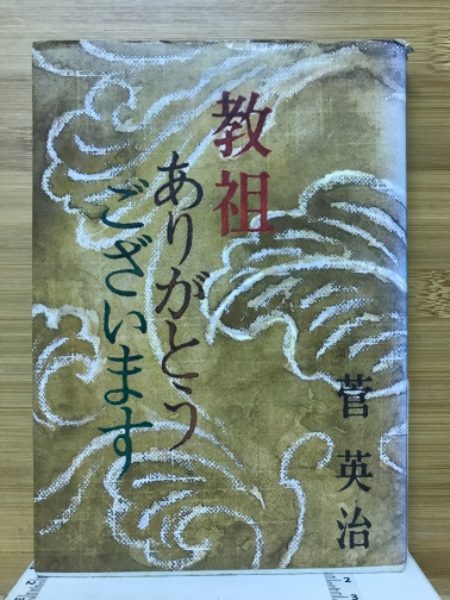 教祖
ありがとう
ございます
菅英治
2
3